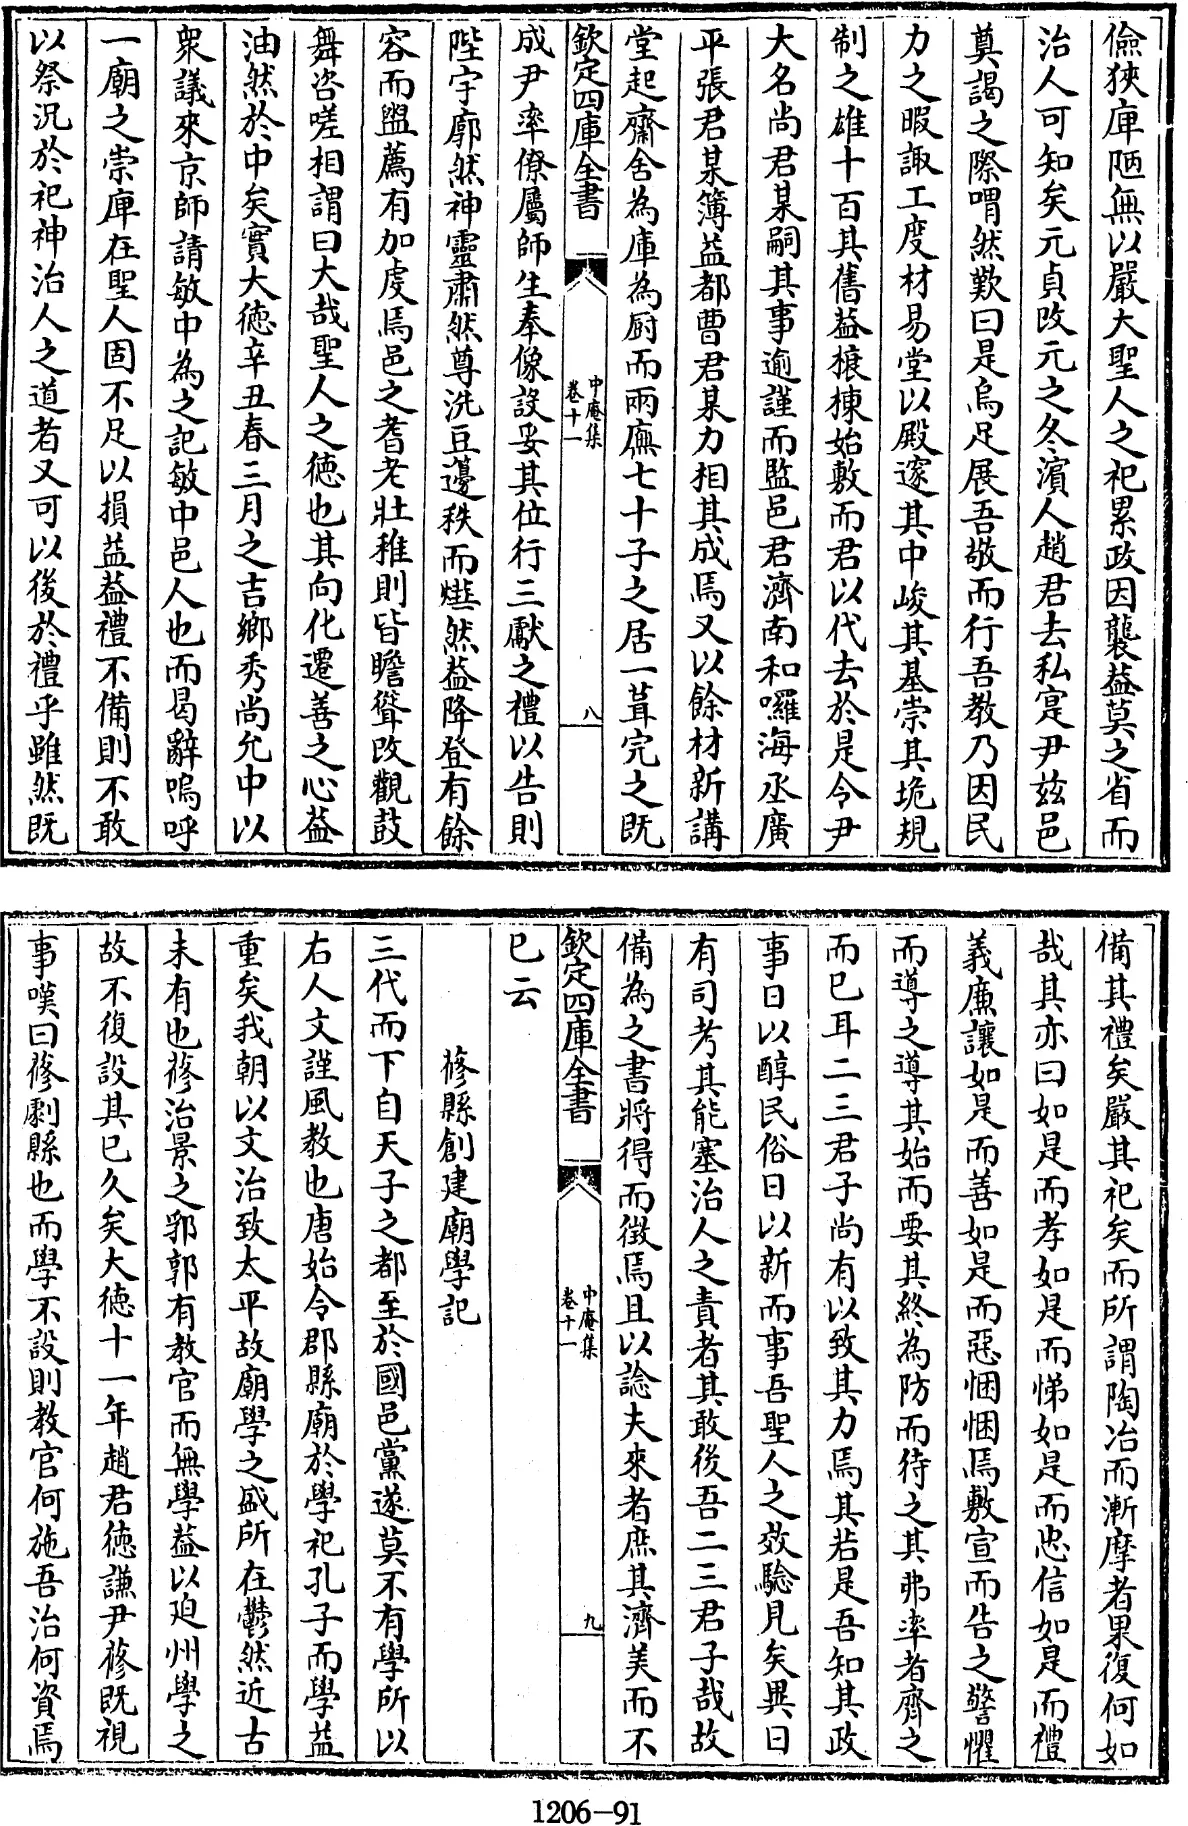 儉狹庳陋無以嚴大聖人之祀累政因襲葢莫之省而
治人可知矣元貞改元之冬濱人趙君去私寔尹兹邑
奠謁之際喟然歎曰是烏足展吾敬而行吾教乃因民
力之暇諏工度材易堂以殿邃其中峻其基崇其垝規
制之雄十百其舊葢榱棟始敷而君以代去於是令尹
大名尚君某嗣其事逾謹而監邑君濟南和囉海丞廣
平張君某簿益都曹君某力相其成焉又以餘材新講
堂起齋舍為庫為厨而兩廡七十子之居一葺完之既
欽定四庫全書
中庵集
卷十一
八
成尹率僚屬師生奉像設妥其位行三獻之禮以告則
陛宇廓然神靈肅然尊洗豆籩秩而爓然葢降登有餘
容而盥薦有加虔焉邑之耆老壯稚則皆瞻聳改觀鼓
舞咨嗟相謂曰大哉聖人之徳也其向化遷善之心葢
油然於中矣實大徳辛丑春三月之吉鄉秀尚允中以
衆議來京師請敏中為之記敏中邑人也而曷辭嗚呼
一廟之崇庳在聖人固不足以損益葢禮不備則不敢
以祭況於祀神治人之道者又可以後於禮乎雖然既
備其禮矣嚴其祀矣而所謂陶冶而漸摩者果復何如
哉其亦曰如是而孝如是而悌如是而忠信如是而禮
義廉讓如是而善如是而惡悃悃焉敷宣而告之警懼
而導之導其始而要其終為防而待之其弗率者齊之
而已耳二三君子尚有以致其力焉其若是吾知其政
事日以醇民俗日以新而事吾聖人之效驗見矣異日
有司考其能塞治人之責者其敢後吾二三君子哉故
備為之書將得而徴焉且以諗夫來者庶其濟美而不
欽定四庫全書
中庵集
卷十一
九
已云
蓨縣創建廟學記
三代而下自天子之都至於國邑黨遂莫不有學所以
右人文謹風教也唐始令郡縣廟於學祀孔子而學益
重矣我朝以文治致太平故廟學之盛所在鬱然近古
未有也蓨治景之郛郭有教官而無學葢以廹州學之
故不復設其已久矣大徳十一年趙君徳謙尹蓨既視
事嘆曰蓨劇縣也而學不設則教官何施吾治何資焉
1206-91